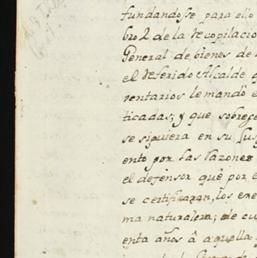 fundandosse para ello
bro 2 de la recopilacio
General de bienes de
el referido Alcalde q
ventarios le mandó e
ticadas; y que sobrese
se siguiera en su Juzg
ento por las razones
el defensor que por e
se certificaran, los exe
ma naturaleza; de cu
enta años à aquella